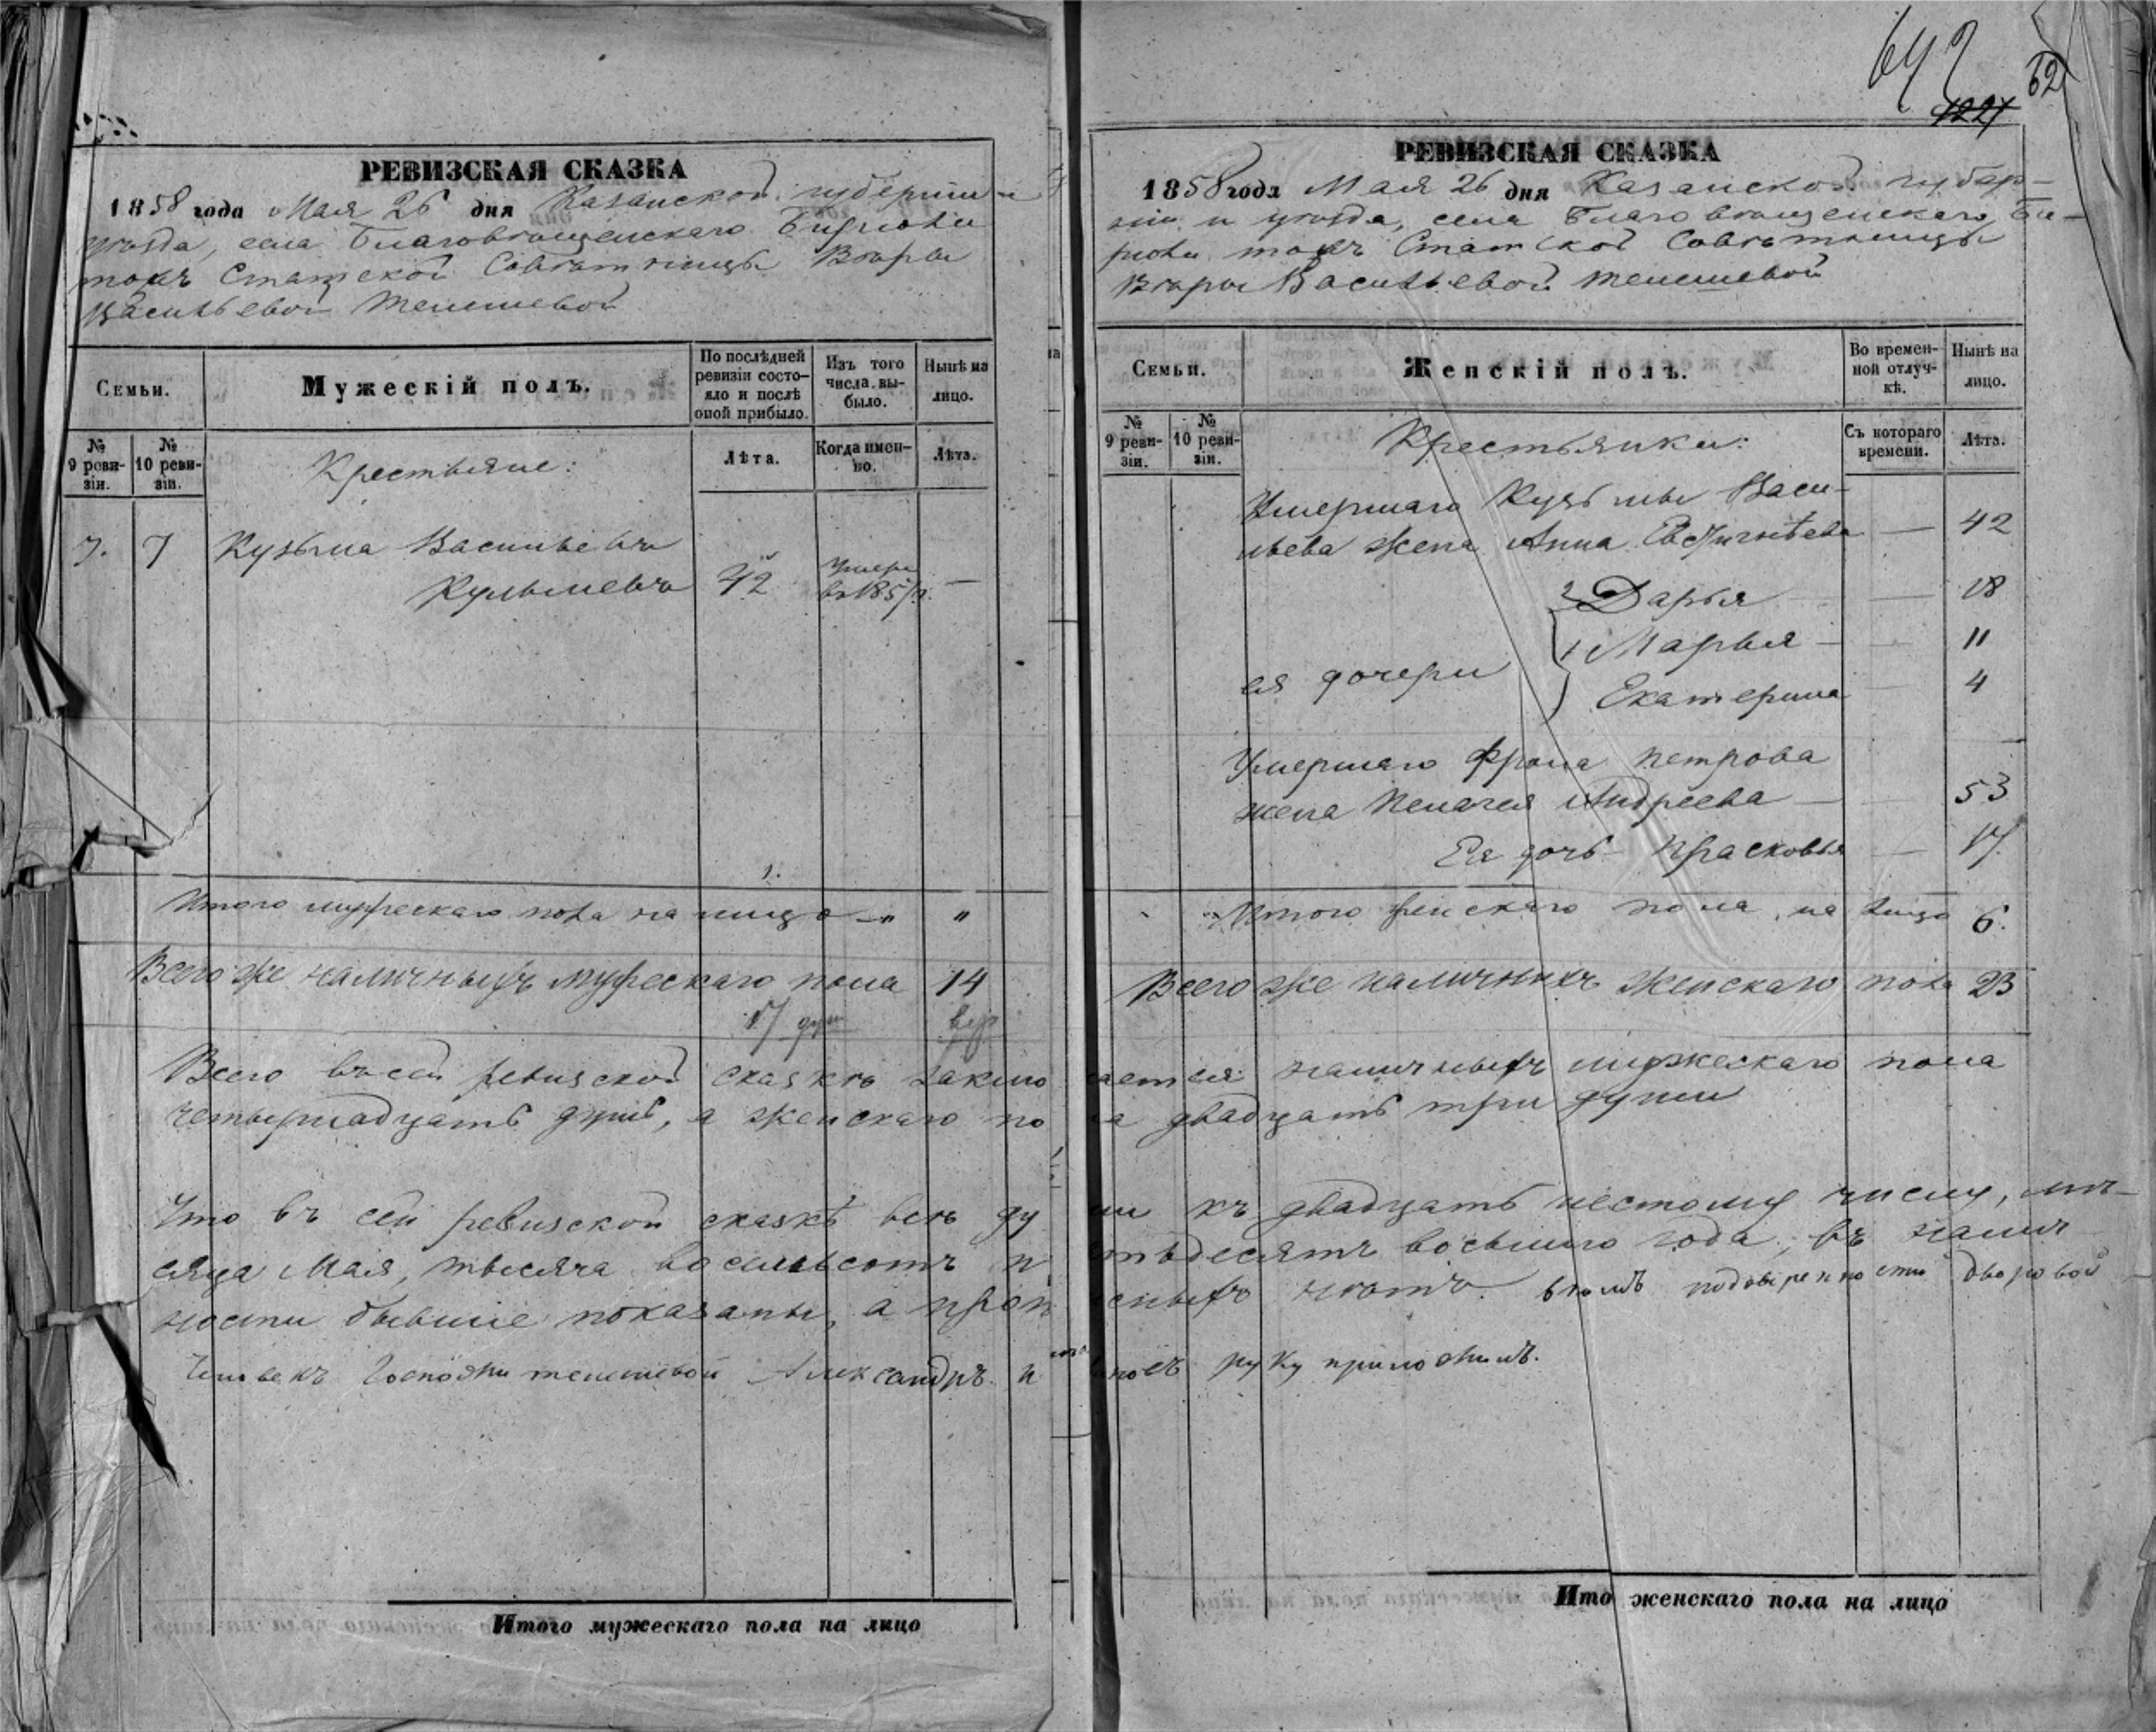 РЕВИЗСКАЯ СКАЗКА
1858 года Мая 26 дня Казанской губерніи и
уѣзда, села Благовѣщенскаго Бирюли
тожъ Статской Совѣтницы Вѣры
Васильевой Телешевой
Семьи.
Мужескій полъ.
По послѣдней ревизіи состо-
яло и послѣ
оной прибыло.
Изъ того
числа вы-
было.
Нынѣ на
лицо.
№
9 реви-
зіи.
№
10 реви-
зіи.
Крестьяне:
Лѣта.
Когда имен-
но.
Лѣта.
7. 7 Кузьма Васильевъ
42 Умеръ —
въ 185
Итого мужескаго пола на лицо — „ „
Всего же наличныхъ мужескаго пола 14
17 душ
642
62
1221
РЕВИЗСКАЯ СКАЗКА
1858 года Мая 26 дня Казанской губер-
ніи и уѣзда, села Благовѣщенскаго Би-
рюли тожъ Статской Совѣтницы
Вѣры Васильевой Телешевой
Семьи.
Женскій полъ.
Во времен-
ной отлуч-
кѣ.
Нынѣ на
лицо.
№
9 реви-
зіи.
№
10 реви-
зіи.
Крестьянки:
Съ котораго
времени.
Лѣта.
Умершаго Кузьмы Васи-
льева жена Анна — 42
2 Дарья — 18
ея дочери 1 Марья — 11
Екатерина — 4
Умершаго Фрола Петрова
жена Пелагея Андреева — 53
Ея дочь Прасковья — 17.
Итого женскаго пола на лицо 6.
Всего же наличныхъ женскаго пола 23
Всего въ сей ревизской сказкѣ заключается наличныхъ мужескаго пола
четырнадцать душъ, а женскаго пола двадцать три души
Что въ сей ревизской сказкѣ всѣ души къ двадцать шестому числу, мѣ-
сяца Мая, тысяча восемьсотъ пятьдесятъ восьмого года, въ налич
ности бывшіе показаны, а пропущенныхъ нѣтъ. въ томъ по довѣренности дворовой
человекъ Госпожи телешевой Александръ руку приложилъ.
Итого мужескаго пола на лицо
Ито женскаго пола на лицо